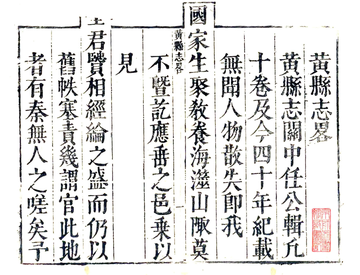 黃縣志畧
黃縣志關中任公輯凢
十卷及今四十年紀載
無聞人物散失即我
國家生聚敎養海澨山陬莫
黃縣志畧
不暨訖應垂之邑乗以
見
君賢相經綸之盛而仍以
舊帙塞責幾謂官此地
者有秦無人之嗟矣予